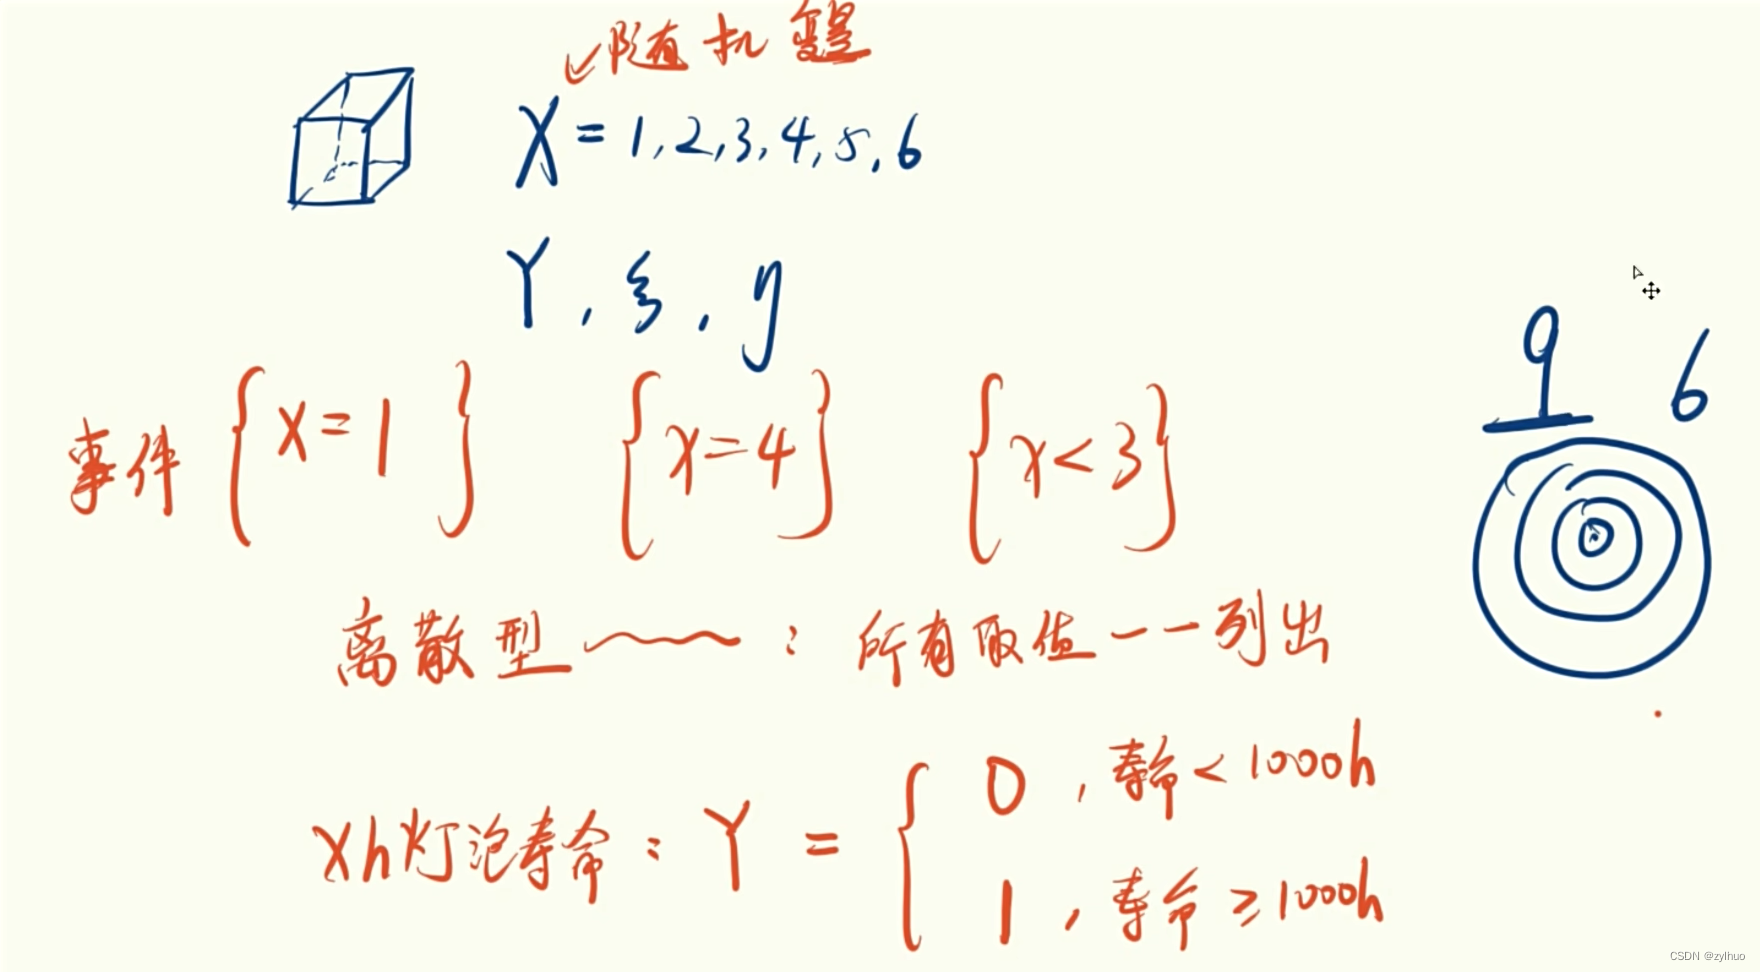 随机变量
X = 1, 2, 3, 4, 5, 6
Y, ξ, η
9 6
事件 {X=1} {X=4} {X<3}
离散型~~: 所有取值一一列出
Xh灯泡寿命: Y = { 0, 寿命<1000h
1, 寿命≥1000h
CSDN @zylhuo